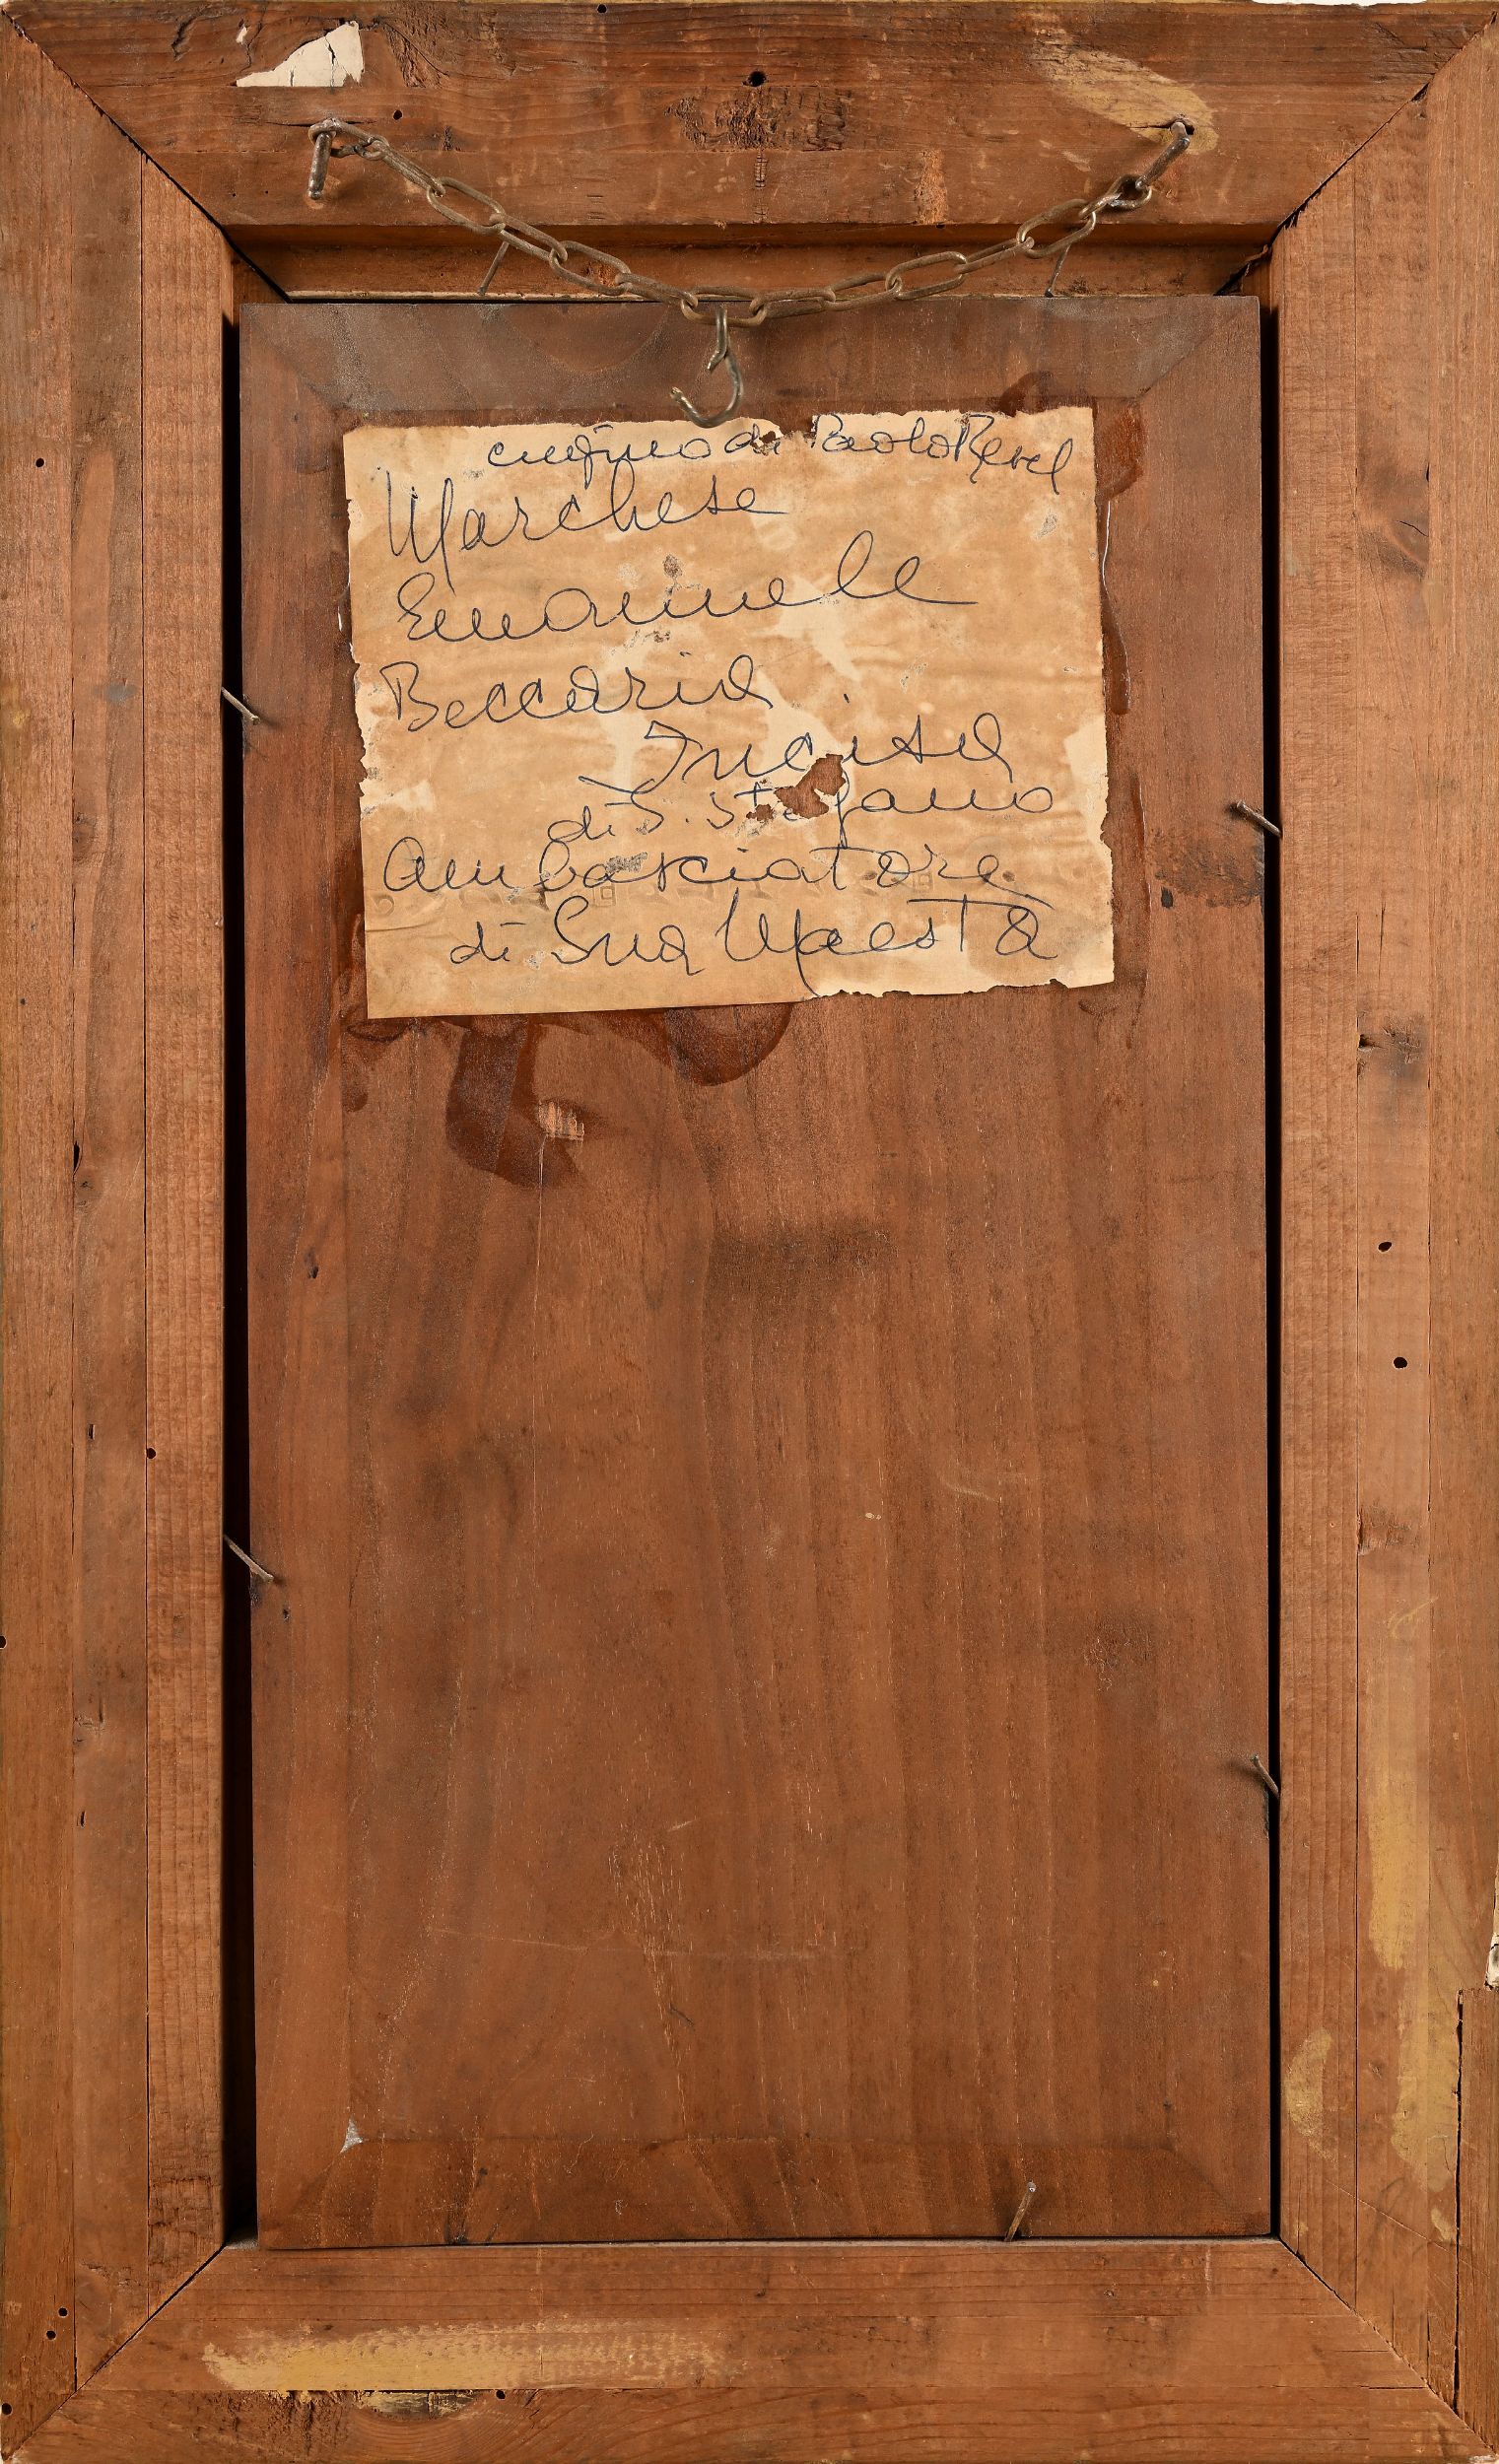 cugino di Paolo Revel
Marchese
Emanuele
Beccaria
Incisa
di S. Stefano
Ambasciatore
di Sua Maestà